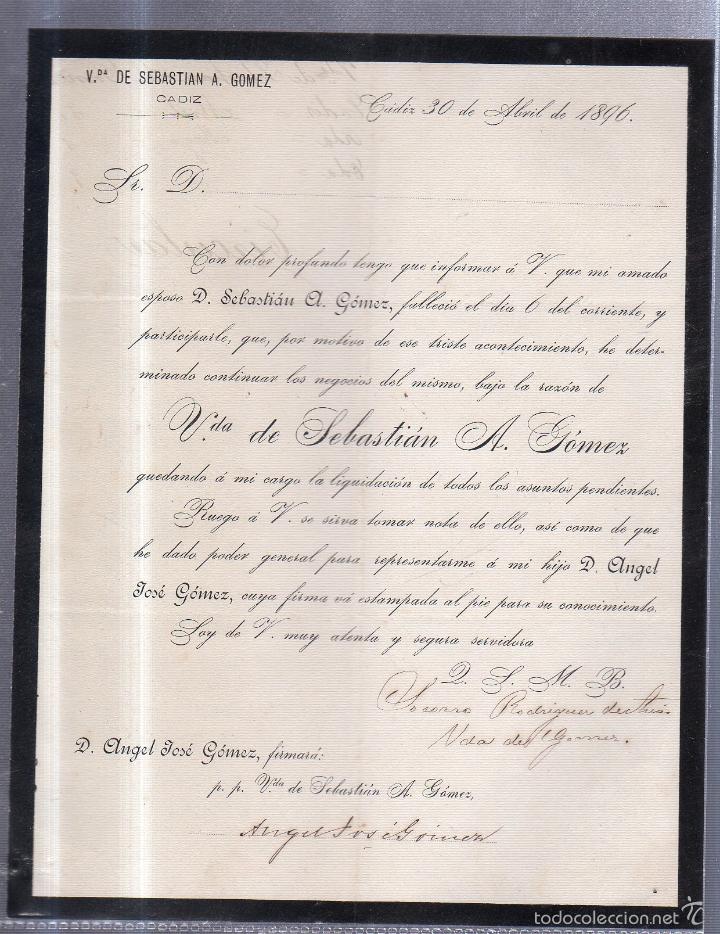 V.DA DE SEBASTIAN A. GOMEZ
CADIZ
Cádiz 30 de Abril de 1896.
Sr. D.
Con dolor profundo tengo que informar á V. que mi amado
esposo D. Sebastián A. Gómez, falleció el dia 6 del corriente, y
participarle, que, por motivo de ese triste acontecimiento, he deter-
minado continuar los negocios del mismo, bajo la razón de
V.da de Sebastián A. Gómez
quedando á mi cargo la liquidación de todos los asuntos pendientes.
Ruego á V. se sirva tomar nota de ello, así como de que
he dado poder general para representarme á mi hijo D. Angel
José Gómez, cuya firma vá estampada al pie para su conocimiento.
Soy de V. muy atenta y segura servidora
Q. S. M. B.
Socorro Rodriguez de
Vda de Gomez.
D. Angel José Gómez, firmará:
p. p. V.da de Sebastián A. Gómez,
Angel José Gómez
todocoleccion.net